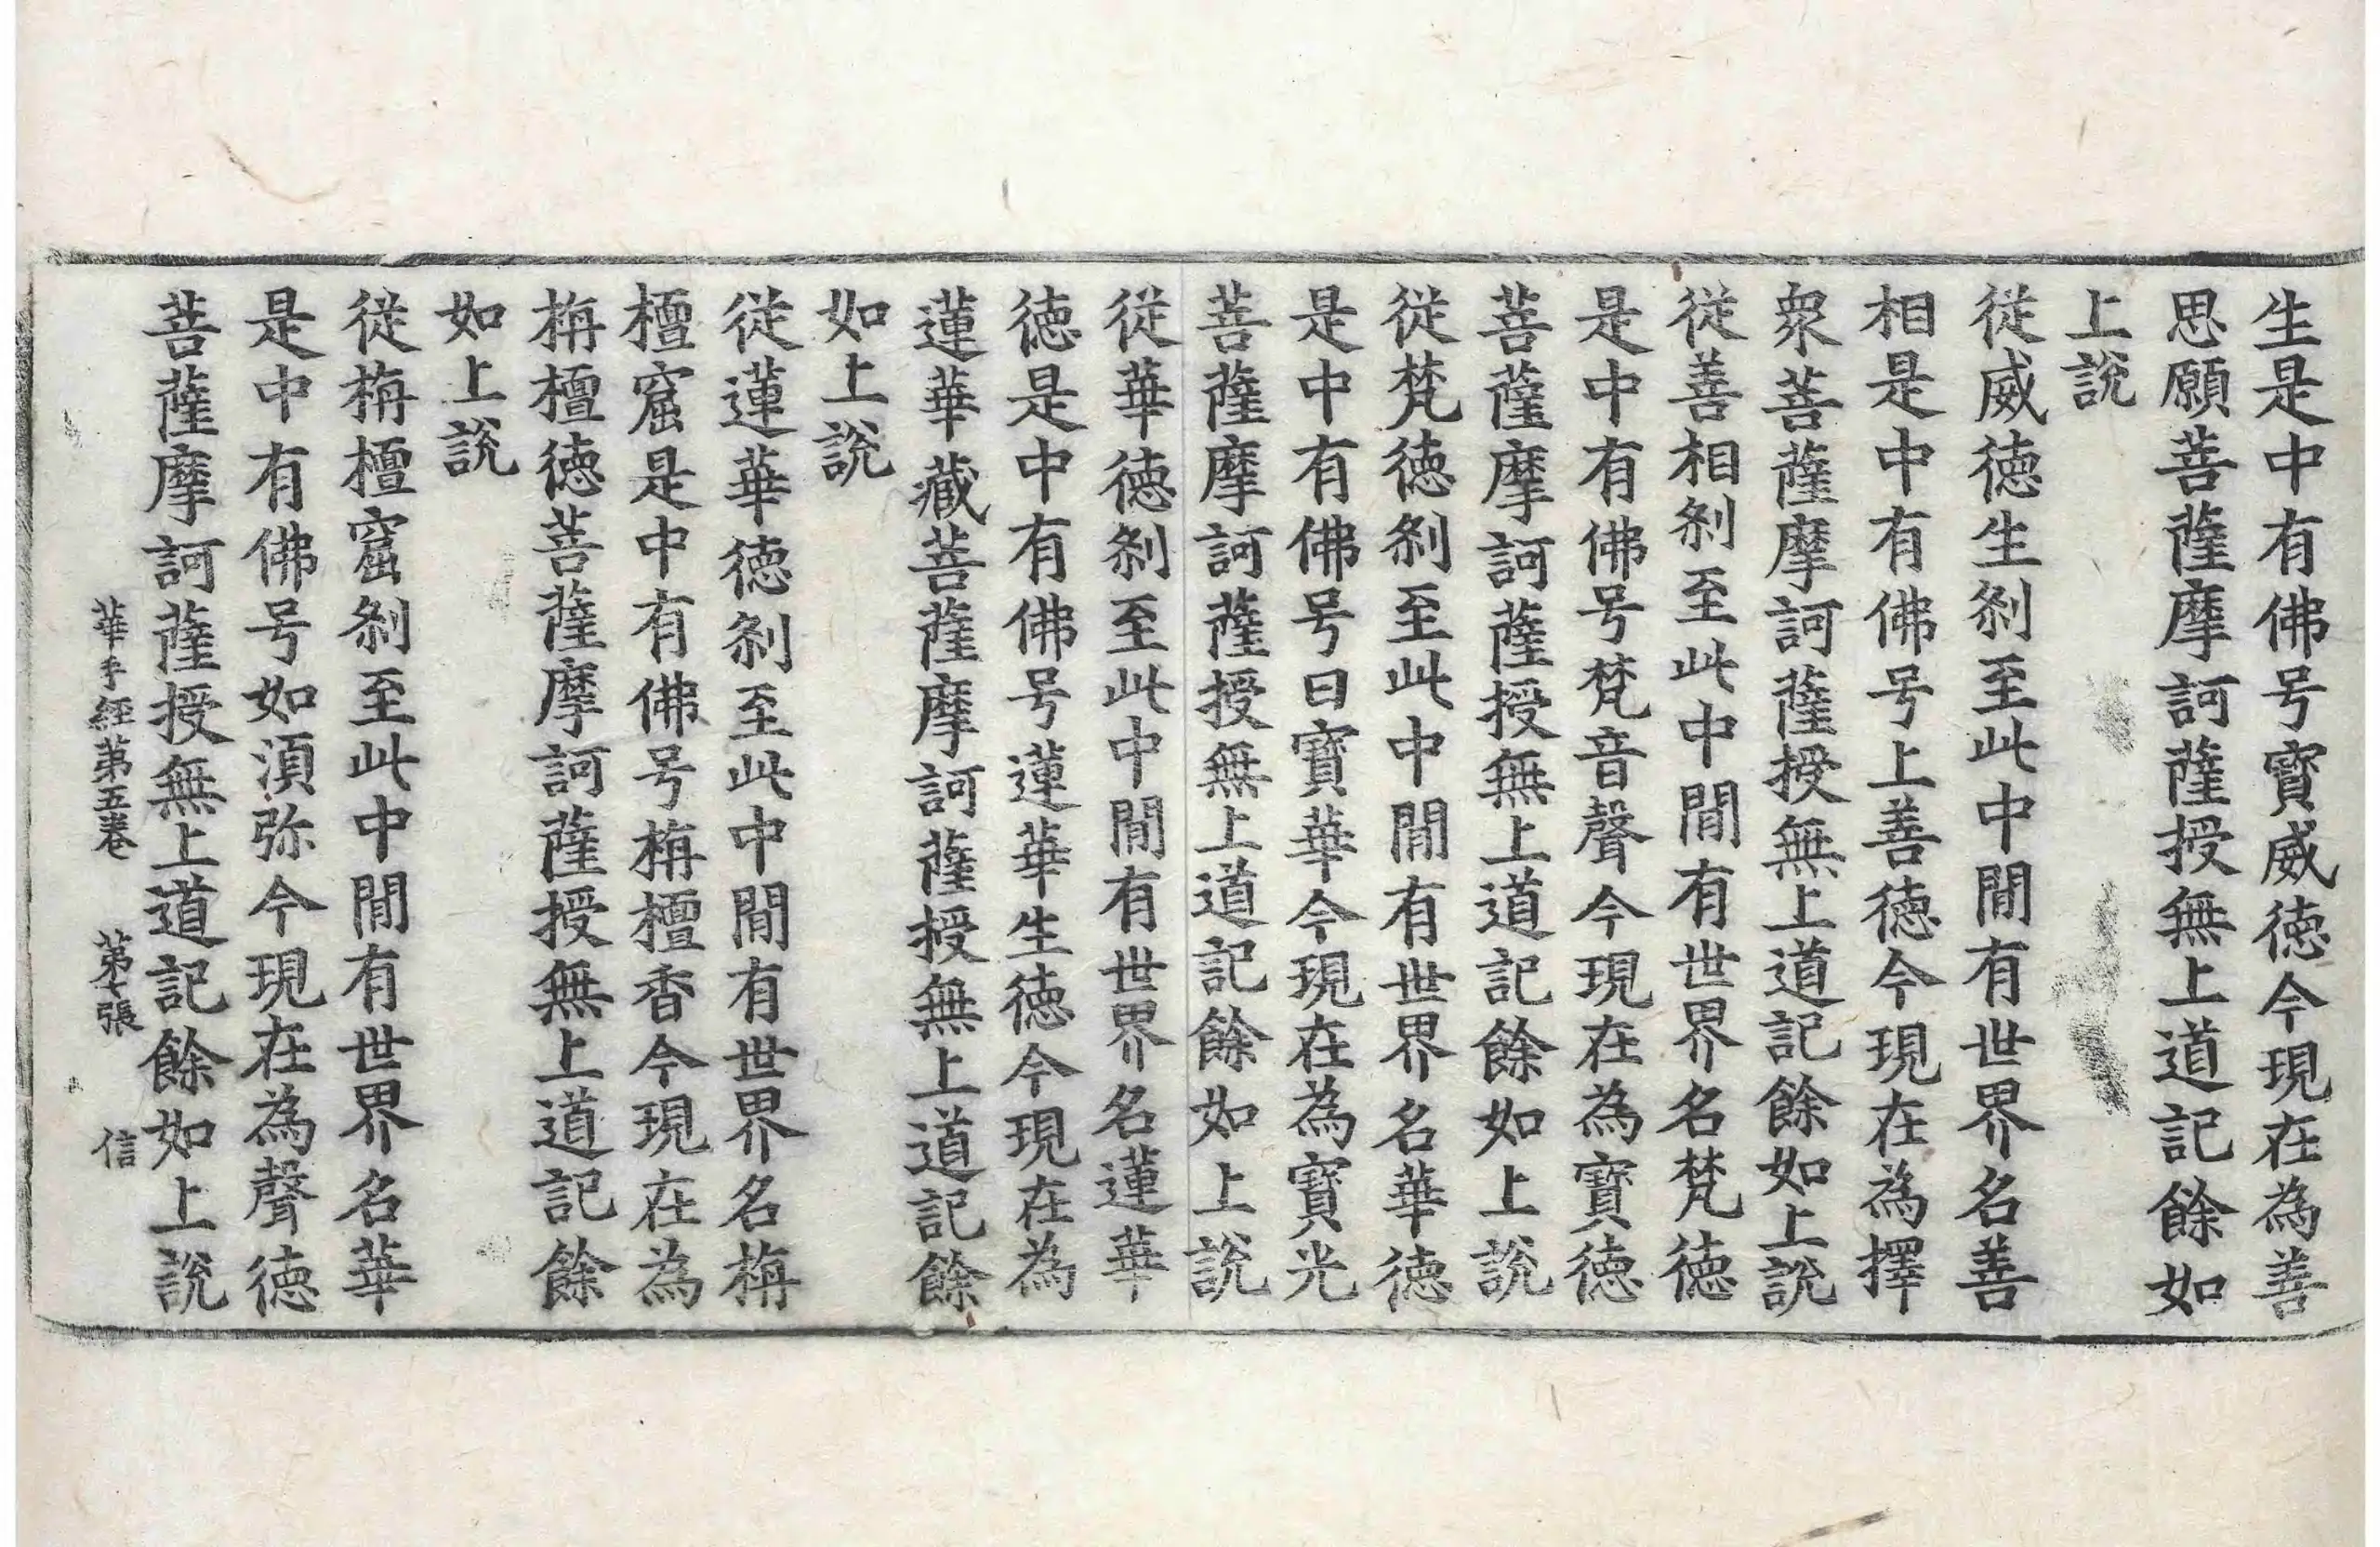 生是中有佛号寶威徳今現在為善
思願菩薩摩訶薩授無上道記餘如
上說
從威徳生剎至此中間有世界名善
相是中有佛号上善徳今現在為擇
衆菩薩摩訶薩授無上道記餘如上說
從善相剎至此中間有世界名梵徳
是中有佛号梵音聲今現在為寶徳
菩薩摩訶薩授無上道記餘如上說
從梵徳剎至此中間有世界名華徳
是中有佛号曰寶華今現在為寶光
菩薩摩訶薩授無上道記餘如上說
從華徳剎至此中間有世界名蓮華
徳是中有佛号蓮華生徳今現在為
蓮華藏菩薩摩訶薩授無上道記餘
如上說
從蓮華徳剎至此中間有世界名栴
檀窟是中有佛号栴檀香今現在為
栴檀徳菩薩摩訶薩授無上道記餘
如上說
從栴檀窟剎至此中間有世界名華
是中有佛号如湏弥今現在為聲徳
菩薩摩訶薩授無上道記餘如上說
華手經第五卷 第七張 信